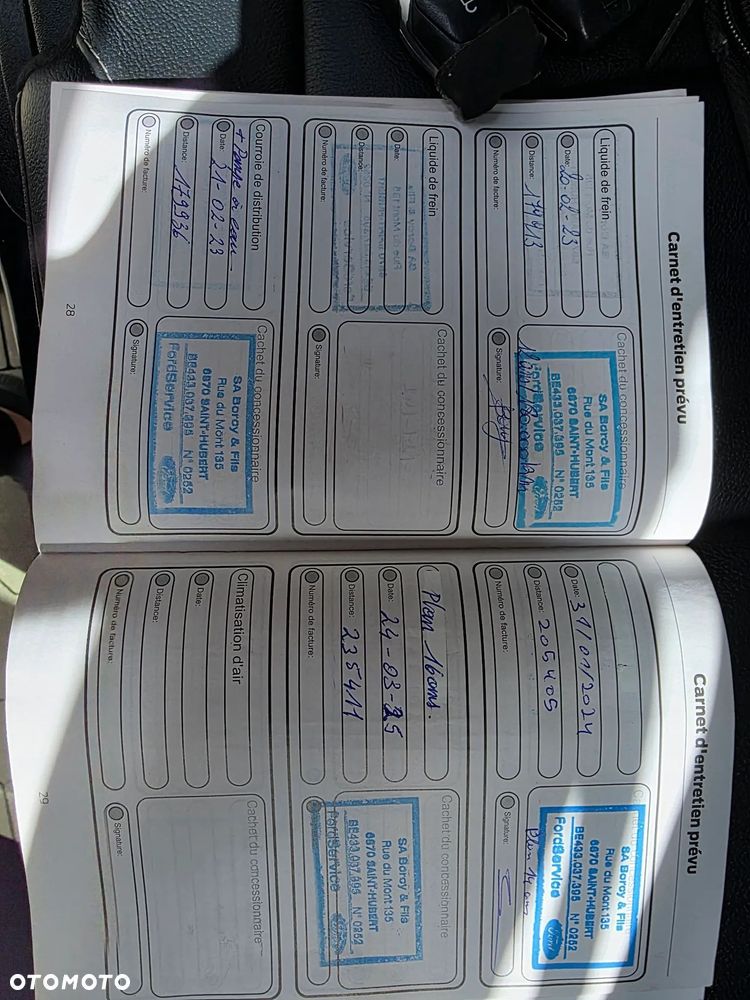 Carnet d'entretien prévu
Liquide de frein
Date: 20-02-23
Distance: 179913
Numéro de facture:
Cachet du concessionnaire
SA Boroy & Fils
Rue du Mont 135
6870 SAINT-HUBERT
BE433.037.395 N° 0252
FordService
Ford
Signature:
Liquide de frein
Date:
Distance:
Numéro de facture:
Cachet du concessionnaire
Signature:
Courroie de distribution
+ Pompe à eau
Date: 21-02-23
Distance: 179936
Numéro de facture:
Cachet du concessionnaire
SA Boroy & Fils
Rue du Mont 135
6870 SAINT-HUBERT
BE433.037.395 N° 0252
FordService
Signature:
28
Carnet d'entretien prévu
Date: 31/01/2024
Distance: 205405
Numéro de facture:
SA Boroy & Fils
Rue du Mont 135
6870 SAINT-HUBERT
BE433.037.395 N° 0252
FordService
Ford
Signature:
Plan 14 ans
Plan 16 ans.
Date: 24-03-25
Distance: 235411
Numéro de facture:
Cachet du concessionnaire
SA Boroy & Fils
Rue du Mont 135
6870 SAINT-HUBERT
BE433.037.395 N° 0252
FordService
Signature:
Climatisation d'air
Date:
Distance:
Numéro de facture:
Cachet du concessionnaire
Signature:
29
OTOMOTO